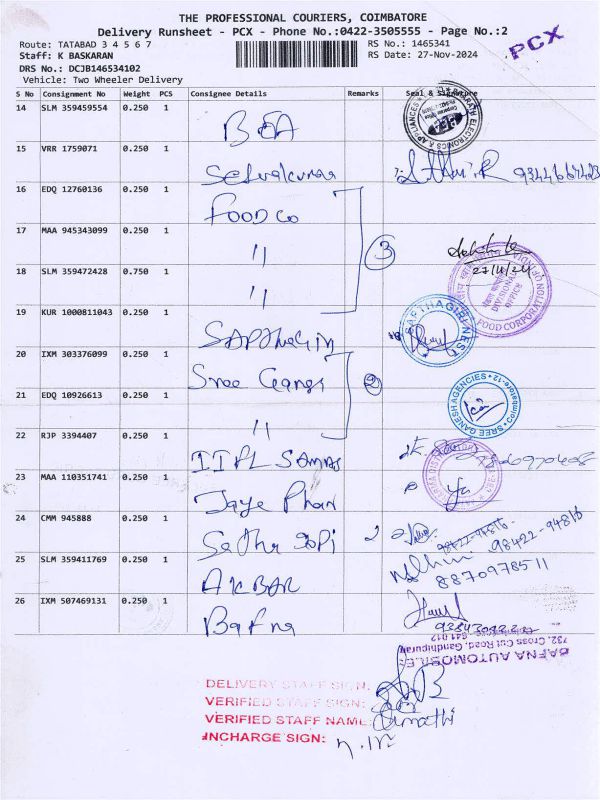 THE PROFESSIONAL COURIERS, COIMBATORE
Delivery Runsheet - PCX - Phone No.:0422-3505555 - Page No.:2
Route: TATABAD 3 4 5 6 7
RS No.: 1465341
PCX
Staff: K BASKARAN
RS Date: 27-Nov-2024
DRS No.: DCJB146534102
Vehicle: Two Wheeler Delivery
S No Consignment No Weight PCS Consignee Details Remarks Seal & Signature
14 SLM 359459554 0.250 1
15 VRR 1759071 0.250 1 Selvakumar
16 EDQ 12760136 0.250 1 FOOD Co
17 MAA 945343099 0.250 1 "
3
18 SLM 359472428 0.750 1 "
27/11/24
DIVISIONAL OFFICE
FOOD CORPORATION OF INDIA
19 KUR 1000811043 0.250 1
SAPTHAGIRI NEST
20 IXM 303376099 0.250 1 Sree Ganesh
2
21 EDQ 10926613 0.250 1 "
SREE GANESH AGENCIES
Coimbatore-12
22 RJP 3394407 0.250 1
23 MAA 110351741 0.250 1 Jaya Phan
24 CMM 945888 0.250 1
2
98422-94816
25 SLM 359411769 0.250 1 AKBAR
8870978511
26 IXM 507469131 0.250 1 Bafna
BAFNA AUTOMOBILE
732, Cross Cut Road, Gandhipuram
641 012
DELIVERY STAFF SIGN:
VERIFIED STAFF SIGN:
VERIFIED STAFF NAME:
INCHARGE SIGN: